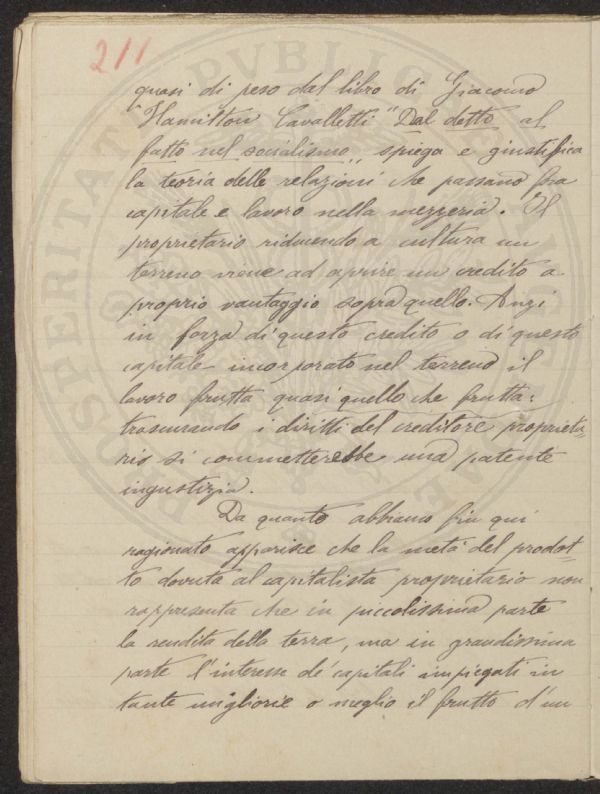 211
quasi di peso dal libro di Giacomo
"Hamilton Cavalletti "Dal detto al
fatto nel socialismo,, spiega e giustifica
la teoria delle relazioni che passano fra
capitale e lavoro nella mezzeria. Il
proprietario riducendo a cultura un
terreno viene ad aprire un credito a
proprio vantaggio sopra quello. Anzi
in forza di questo credito o di questo
capitale incorporato nel terreno il
lavoro frutta quasi quello che frutta:
trascurando i diritti del creditore proprieta-
rio si commetterebbe una patente
ingustizia.
Da quanto abbiamo fin qui
ragionato apparisce che la metà del prodot-
to dovuta al capitalista proprietario non
rappresenta che in piccolissima parte
la rendita della terra, ma in grandissima
parte l'interesse de' capitali impiegati in
tante migliorie o meglio il frutto d'un